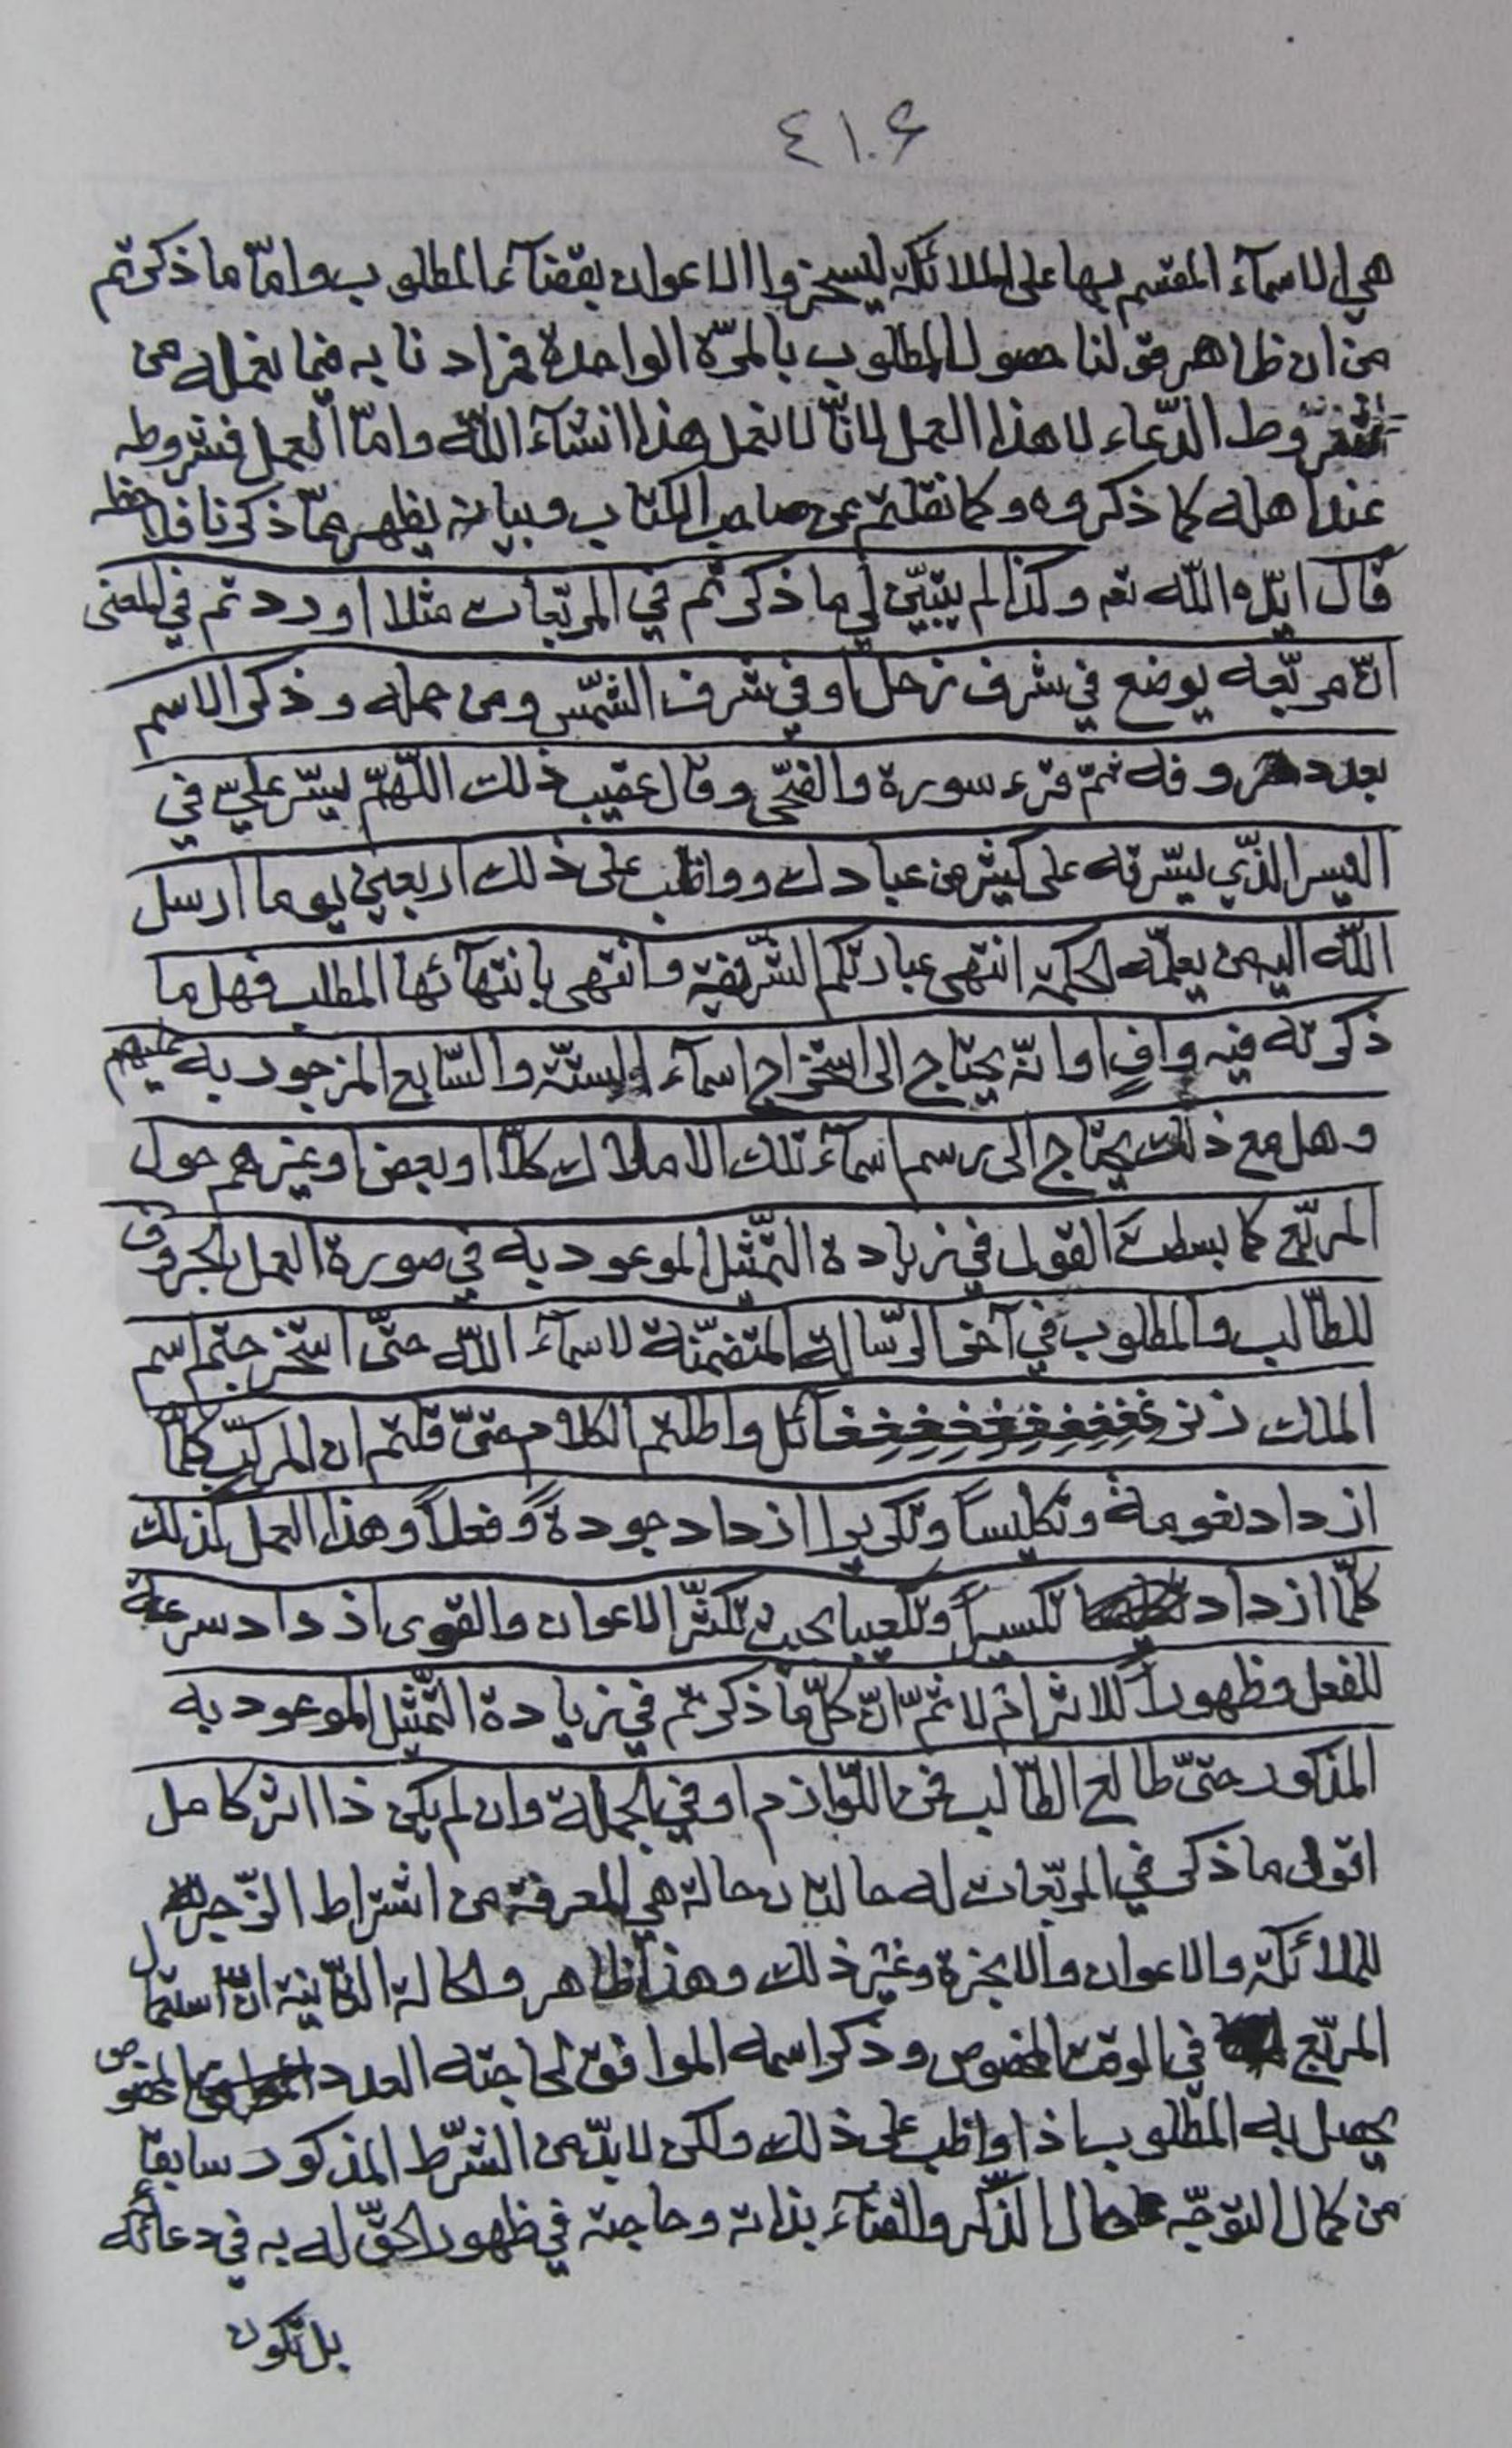 ٤١٠۶
هي الاسمآء المقسم بها على الملائكة ليسخروا الاعوان بقضآء المطلوب وامّا ما ذكرتم
من ان ظاهر قولنا حصول المطلوب بالمرّة الواحدة فمرادنا به فيما نعمله من
شروط الدّعاء لا هذا العمل لانّا لا نعمل هذا انشآء اللّه وامّا العمل فشروطه
عند اهله كما ذكروه وكما نقلتم عن صاحب الكتاب وبيانه يظهر ممّا ذكرنا فلاحظ
قال ايّده اللّه تعـ وكذا لم يتبيّن لي ما ذكرتم في المربّعات مثلا اوردتم في المغنى
انّ مربّعه يوضع في شرف زحل او في شرف الشّمس ومن حمله وذكر الاسم
بعدد حروفه ثمّ قرء سورة والضّحى وقال عقيب ذلك اللّهمّ يسّر عليّ في
اليسر الذّي يسّرته على كثير من عبادك وواظب على ذلك اربعين يوما ارسل
اللّه اليه من يعلّمه الحكمة انتهى عبارتكم الشّريفة وانتهى بانتهآئها المطلب فهل ما
ذكرته فيه وافٍ او انّه يحتاج الى استخراج اسمآء الستّة والسّابع المزجور به عليهم
وهل مع ذلك يحتاج الى رسم اسمآء تلك الاملاك كلّا او بعض او غيرهم حول
المربّع كما بسطت القول في زيادة التّمثيل الموعود به في صورة العمل بالحروف
للطّالب والمطلوب في آخر الرّسالة المتضمّنة لاسمآء اللّه حتّى استخرجتم اسم
الملك واطلتم الكلام حتّى قلتم ان المركّب كلّما
ازداد نعومة وتكليساً وتكريرا ازداد جودة وفعلاً وهذا العمل كذلك
كلّما ازداد تكسيراً وتكعيبا بحيث تكثّر الاعوان والقوى ازداد سرعة
للفعل وظهوراً للاثر ام لا ثمّ انّ كلّ ما ذكرتم في زيادة التّمثيل الموعود به
المذكور حتّى طالع الطّالب من اللّوازم او في الجملة وان لم يكن ذا اثر كامل
اقول ما ذكر في المربّعات له حالتان حالة هي المعرفة من اشتراط الزّجر
للملائكة والاعوان والابخرة وغير ذلك وهذا ظاهر والحالة الثّانية انّ استعمال
المربّع في الوقت المخصوص وذكر اسمه الموافق لحاجته العدد المخصوص
يحصل به المطلوب اذا واظب على ذلك ولكن لا بدّ من الشّرط المذكور سابقا
من كمال التوجّه حال الذّكر والفنآء بذاته وحاجته في ظهور الحقّ له به في دعائه
بل تكون